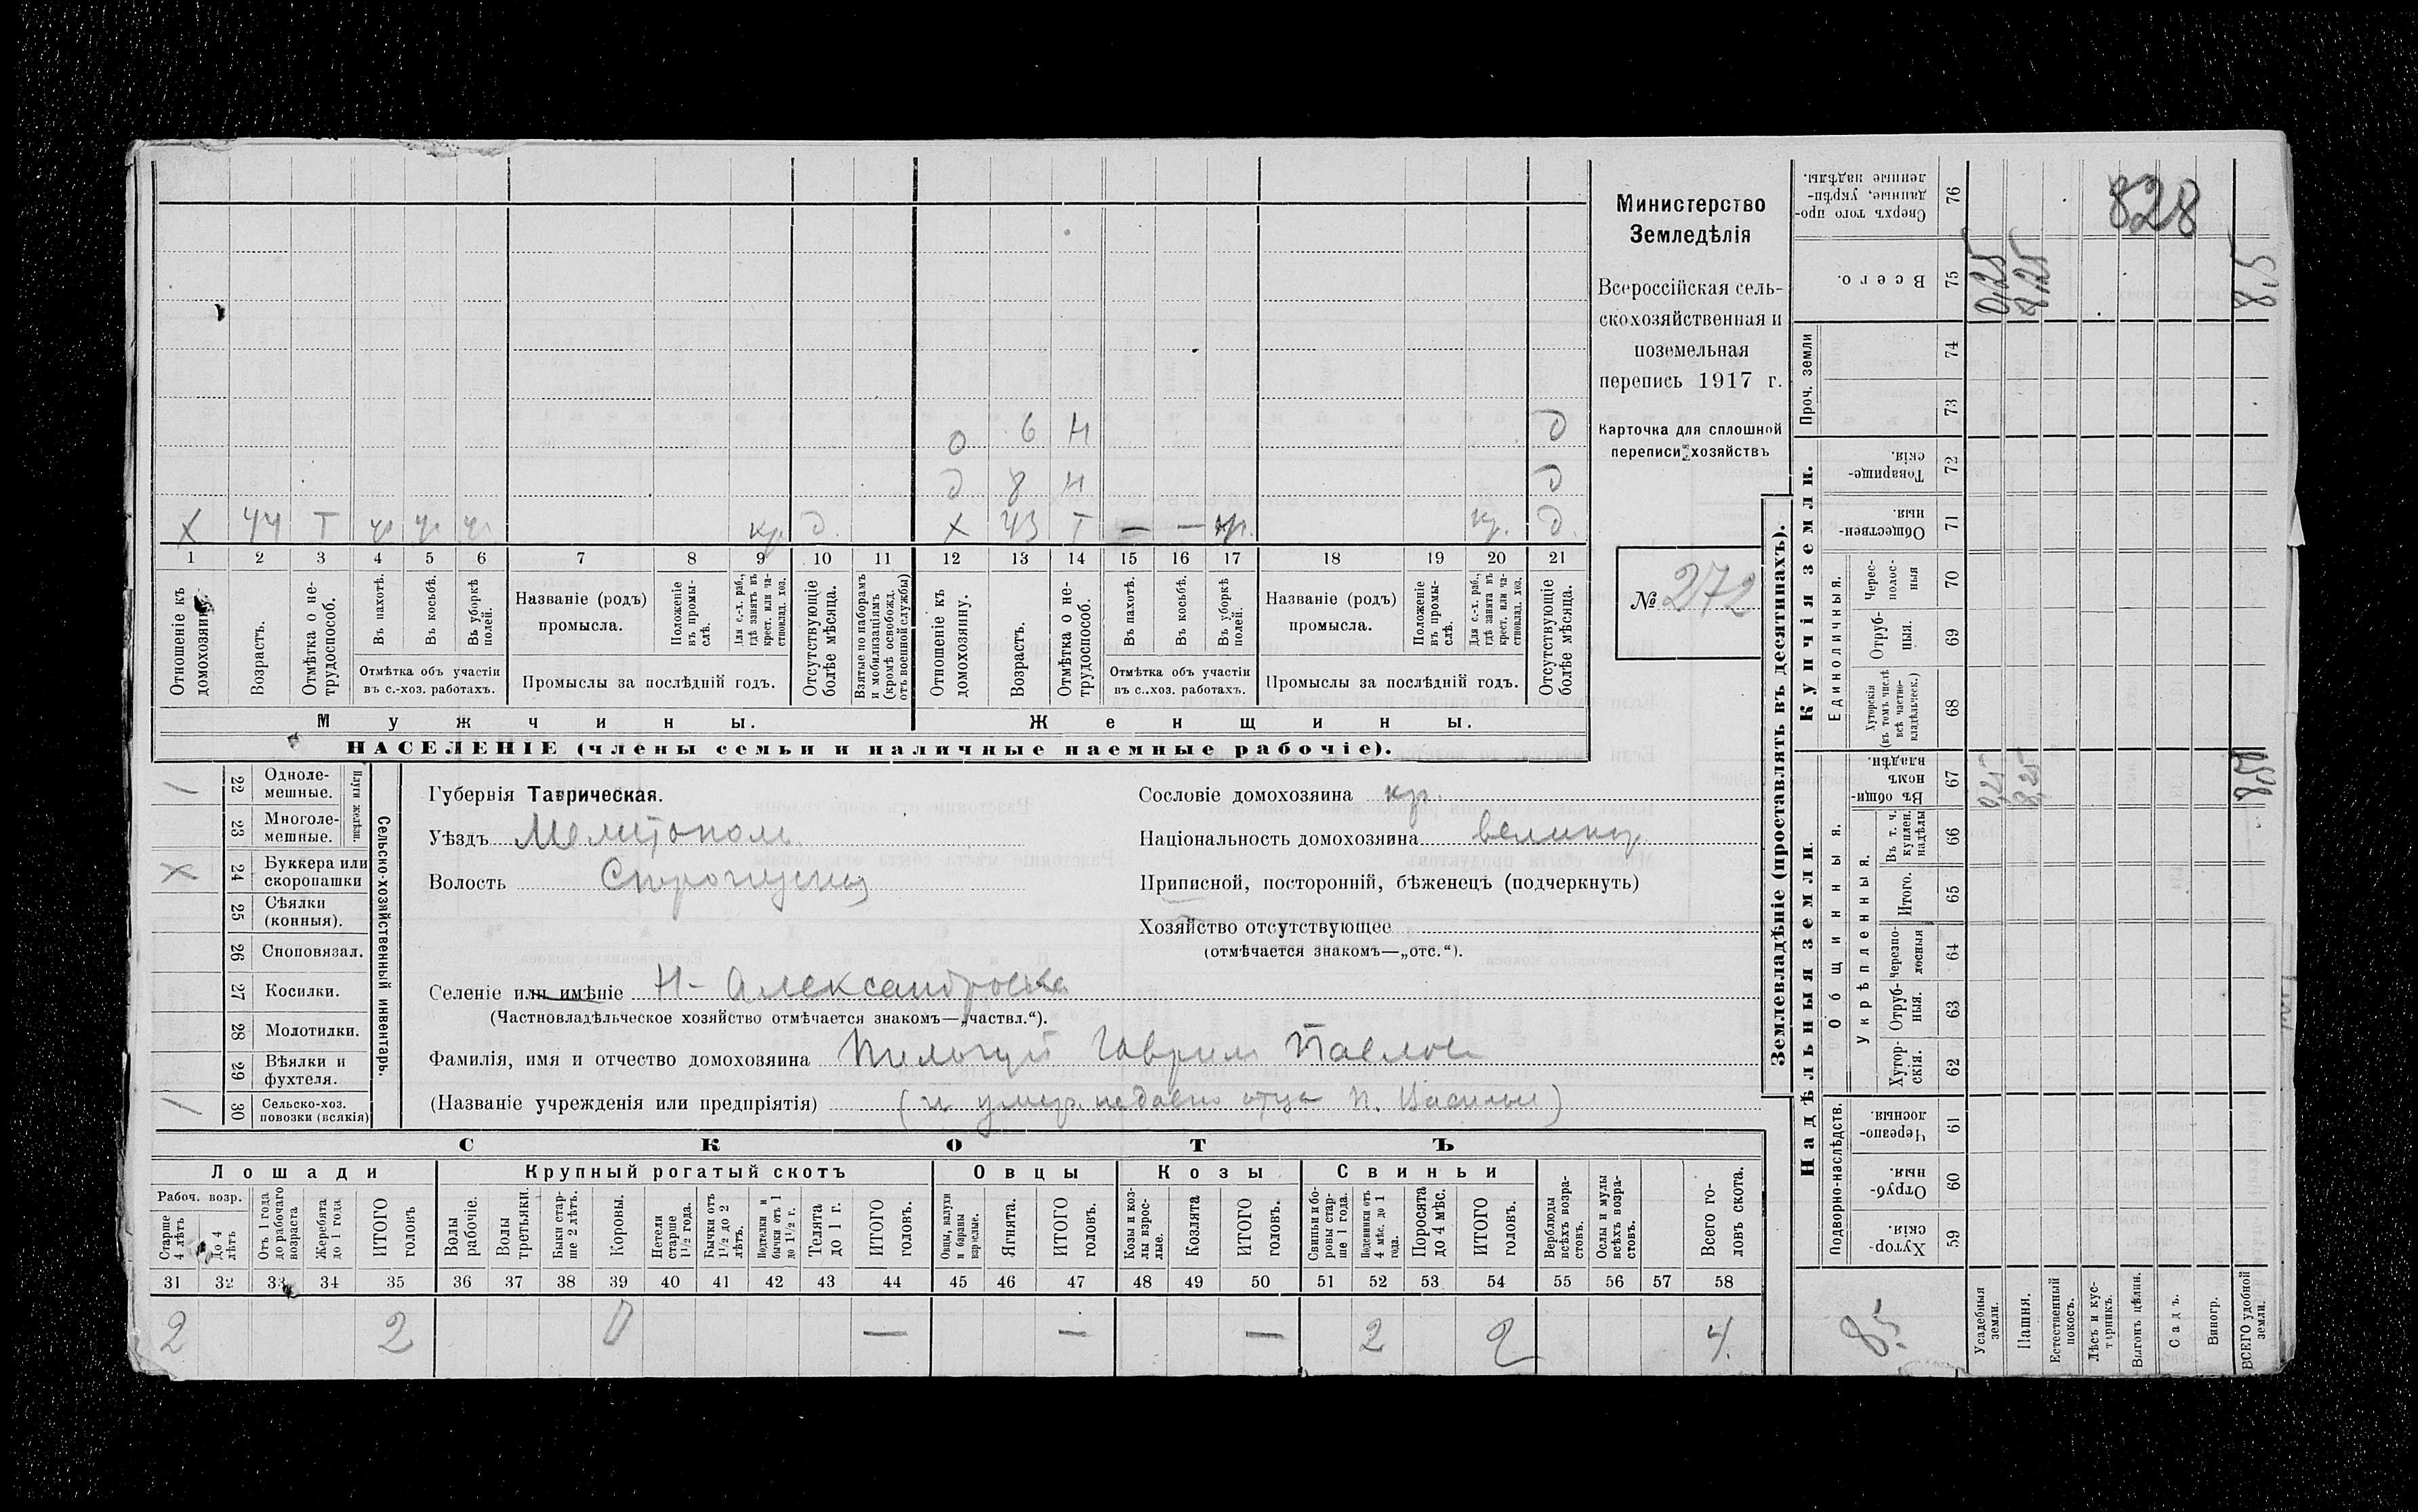 828
Министерство
Земледѣлія
Всероссійская сель-
скохозяйственная и
поземельная
перепись 1917 г.
Карточка для сплошной
переписи хозяйствъ
№ 272
о 6 н д
д 8 н д
х 44 т кр. д. х 43 т — — кр. д.
1 2 3 4 5 6 7 8 9 10 11 12 13 14 15 16 17 18 19 20 21
Отношеніе къ домохозяину.
Возрастъ.
Отмѣтка о не-трудоспособ.
Въ пахотѣ.
Въ косьбѣ.
Въ уборкѣ полей.
Отмѣтка объ участіи
въ с.-хоз. работахъ.
Названіе (родъ)
промысла.
Положеніе въ промы-слѣ.
Для с.-х. раб., гдѣ занятъ въ крест. или ча-стновлад. хоз.
Промыслы за послѣдній годъ.
Отсутствующіе болѣе мѣсяца.
Взятые по наборамъ и мобилизаціямъ (кромѣ освобожд. отъ военной службы)
Отношеніе къ домохозяину.
Возрастъ.
Отмѣтка о не-трудоспособ.
Въ пахотѣ.
Въ косьбѣ.
Въ уборкѣ полей.
Отмѣтка объ участіи
въ с.-хоз. работахъ.
Названіе (родъ)
промысла.
Положеніе въ промы-слѣ.
Для с.-х. раб., гдѣ занята въ крест. или ча-стновлад. хоз.
Промыслы за послѣдній годъ.
Отсутствующіе болѣе мѣсяца.
Мужчины. Женщины.
НАСЕЛЕНІЕ (члены семьи и наличные наемные рабочіе).
Сельско-хозяйственный инвентарь.
Плуги желѣзн.
/ 22 Одноле-мешные.
23 Многоле-мешные.
х 24 Буккера или скоропашки
25 Сѣялки (конныя).
26 Сноповязал.
27 Косилки.
28 Молотилки.
29 Вѣялки и фухтеля.
/ 30 Сельско-хоз. повозки (всякія)
Губернія Таврическая.
Уѣздъ Мелитополь.
Волость
Селеніе или имѣніе Н-Александровка
(Частновладѣльческое хозяйство отмѣчается знакомъ—„частвл.“).
Фамилія, имя и отчество домохозяина Гаврило Павлов
(Названіе учрежденія или предпріятія) (и умер. недавно отца П. )
Сословіе домохозяина кр.
Національность домохозяина великор.
Приписной, посторонній, бѣженецъ (подчеркнуть)
Хозяйство отсутствующее
(отмѣчается знакомъ—„отс.“).
СКОТЪ
Лошади Крупный рогатый скотъ Овцы Козы Свиньи
Рабоч. возр.
Старше 4 лѣтъ
До 4 лѣтъ
Отъ 1 года до рабочаго возраста
Жеребята до 1 года
ИТОГО головъ
Волы рабочіе.
Волы третьяки.
Быки стар-ше 2 лѣтъ.
Коровы.
Нетели старше 1½ года.
Бычки отъ 1½ до 2 лѣтъ.
Подтелки и бычки отъ 1 до 1½ г.
Телята до 1 г.
ИТОГО головъ.
Овцы, валухи и бараны взрослые.
Ягнята.
ИТОГО головъ.
Козы и коз-лы взрос-лые.
Козлята
ИТОГО головъ.
Свиньи и бо-ровы стар-ше 1 года.
Подсвинки отъ 4 мѣс. до 1 года.
Поросята до 4 мѣс.
ИТОГО головъ.
Верблюды всѣхъ возра-стовъ.
Ослы и мулы всѣхъ возра-стовъ.
Всего го-ловъ скота.
31 32 33 34 35 36 37 38 39 40 41 42 43 44 45 46 47 48 49 50 51 52 53 54 55 56 57 58
2 2 0 — — — 2 2 4.
Землевладѣніе (проставлять въ десятинахъ).
Сверхъ того про-данные, укрѣп-ленные надѣлы. 76
Всего. 75 0,25 8,25 8,5
Проч. земли 74
73
Купчія земли.
Товарище-скія. 72
Обществен-ныя. 71
Единоличныя.
Черес-полос-ныя 70
Отруб-ныя. 69
Хуторскія (въ томъ числѣ всѣ частно-владѣльческ.) 68
Надѣльныя земли.
Общинныя.
Въ общин-номъ владѣн. 67 0,25 8,25 8,5
Укрѣпленныя.
Въ т. ч. куплен. надѣлы 66
Итого. 65
Черезпо-лосныя 64
Отруб-ныя. 63
Хутор-скія. 62
Подворно-наслѣдств.
Черезпо-лосныя. 61
Отруб-ныя. 60
Хутор-скія. 59
8,5
Усадебныя земли.
Пашня.
Естественный покосъ.
Лѣсъ и кус-тарникъ.
Выгонъ цѣлин.
Садъ.
Виногр.
ВСЕГО удобной земли.